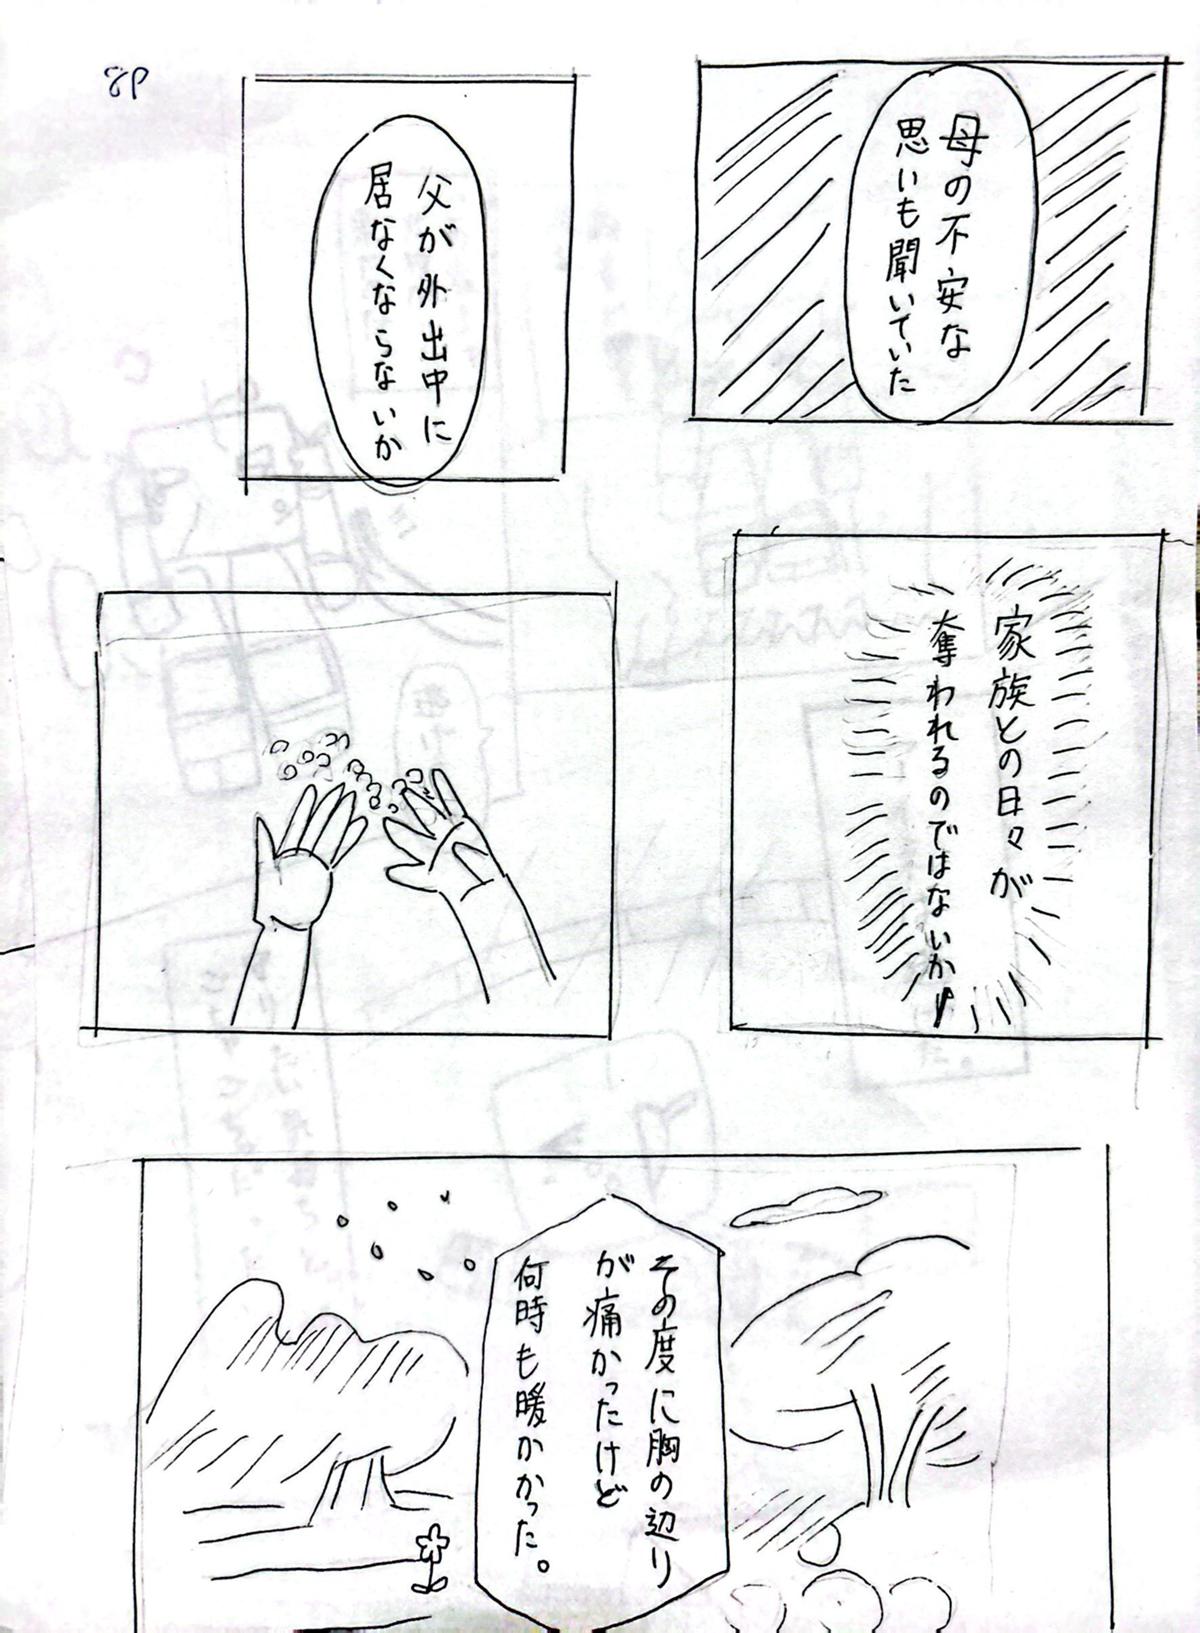 8P
母の不安な
思いも聞いていた
父が外出中に
居なくならないか
家族との日々が
奪われるのではないか
その度に胸の辺り
が痛かったけど
何時も暖かかった。